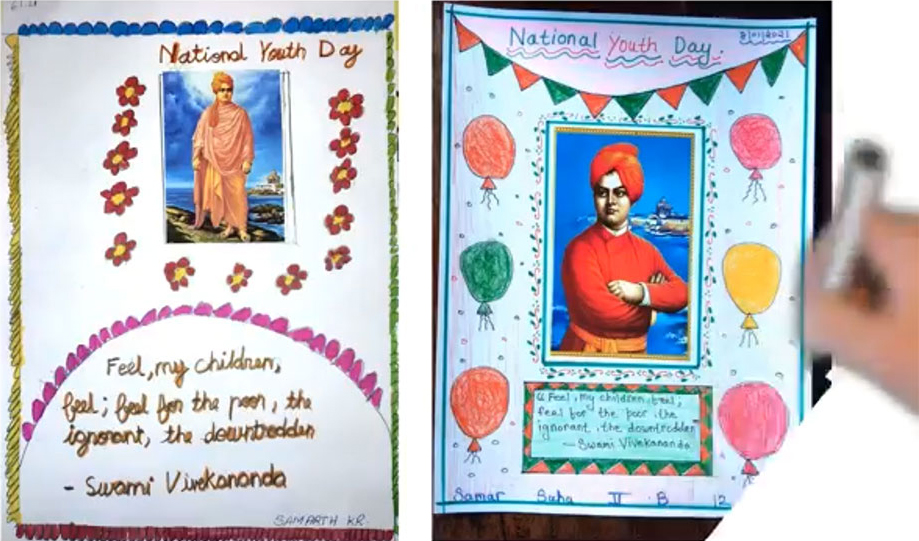 National Youth Day
Feel, my children,
feel; feel for the poor, the
ignorant, the downtrodden
- Swami Vivekananda
SAMARTH KR.
National Youth Day.
“Feel, my children, feel;
feel for the poor, the
ignorant, the downtrodden”
- Swami Vivekananda
Samar Saha II B 12